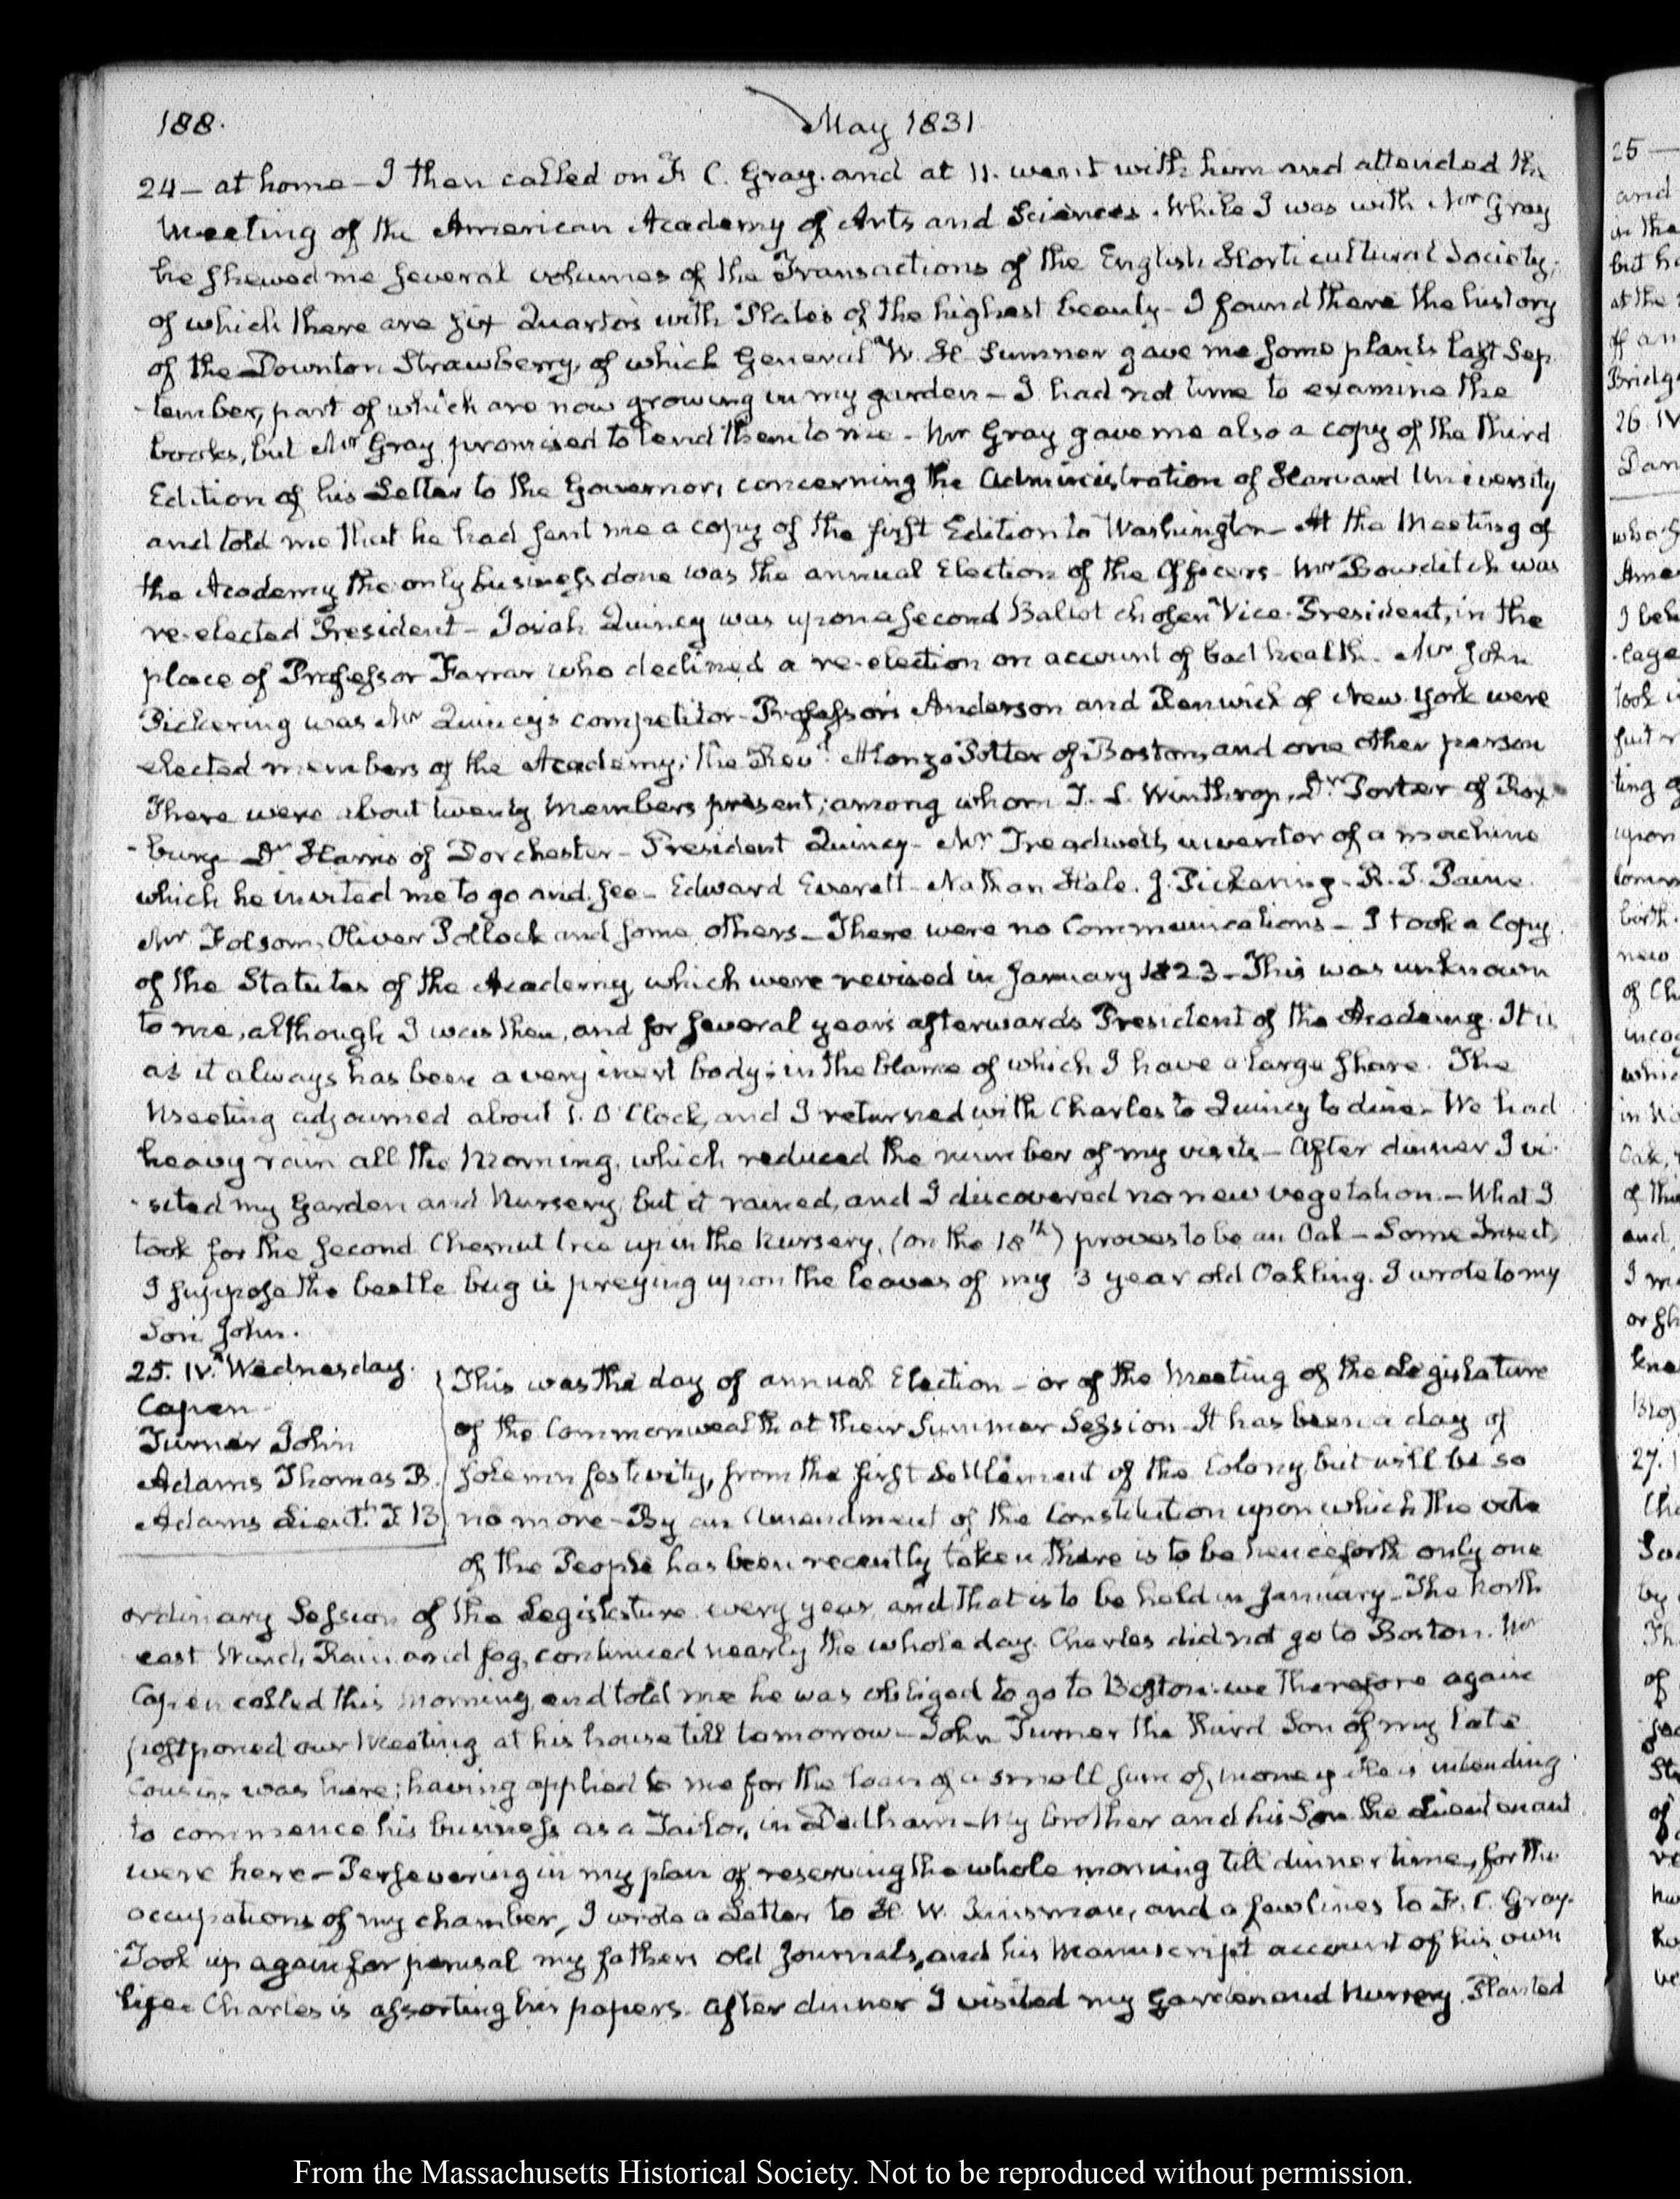 188.
May 1831
24 — at home — I then called on F. C. Gray. and at 11. went with him and attended the
Meeting of the American Academy of Arts and Sciences. While I was with Mr Gray
he shewed me several volumes of the Transactions of the English Horticultural Society;
of which there are six Quartos with Plates of the highest beauty — I found there the history
of the Downton Strawberry, of which General W. H. Sumner gave me some plants last Sep
-tember, part of which are now growing in my garden — I had not time to examine the
books, but Mr Gray promised to lend them to me — Mr Gray gave me also a copy of the third
Edition of his Letter to the Governor, concerning the Administration of Harvard University
and told me that he had sent me a copy of the first Edition to Washington — At the Meeting of
the Academy the only business done was the annual Election of the Officers — Mr Bowditch was
re-elected President — Josiah Quincy was upon a second Ballot chosen Vice-President, in the
place of Professor Farrar who declined a re-election on account of bad health. Mr John
Pickering was Mr Quincy's competitor — Professors Anderson and Renwick of New-York were
elected members of the Academy; the Revd. Alonzo Potter of Boston, and one other person
There were about twenty Members present; among whom T. L. Winthrop, Dr Porter of Rox
-bury — Dr Harris of Dorchester — President Quincy — Mr Treadwell, inventor of a machine
which he invited me to go and see — Edward Everett — Nathan Hale. J. Pickering — R. T. Paine
Mr Folsom, Oliver Pollock and some others — There were no Communications — I took a Copy
of the Statutes of the Academy, which were revised in January 1823 — This was unknown
to me, although I was then, and for several years afterwards President of the Academy. It is
as it always has been a very inert body; in the blame of which I have a large share. The
Meeting adjourned about 1. O'Clock, and I returned with Charles to Quincy to dine — We had
heavy rain all the Morning, which reduced the number of my visits — After dinner I vi
-sited my Garden and Nursery, but it rained, and I discovered no new vegetation. — What I
took for the second Chesnut tree up in the Nursery, (on the 18th) proves to be an Oak — Some Insect,
I suppose the beetle bug is preying upon the leaves of my 3 year old Oakling. I wrote to my
Son John.
25. IV. Wednesday.
Capen
Turner John
Adams Thomas B.
Adams Lieutt. T B
This was the day of annual Election — or of the Meeting of the Legislature
of the Commonwealth at their Summer Session — It has been a day of
solemn festivity, from the first Settlement of the Colony, but will be so
no more — By an Amendment of the Constitution upon which the vote
of the People has been recently taken there is to be henceforth only one
ordinary Session of the Legislature every year, and that is to be held in January — The North
east Wind, Rain and fog, continued nearly the whole day. Charles did not go to Boston. Mr
Capen called this Morning, and told me he was obliged to go to Boston. we therefore again
postponed our Meeting at his house till tomorrow — John Turner the third Son of my late
Cousin, was here; having applied to me for the loan of a small sum of money. He is intending
to commence his business as a Tailor, in Dedham — My brother and his Son the Lieutenant
were here — Persevering in my plan of reserving the whole morning till dinner time, for the
occupations of my chamber, I wrote a Letter to H. W. Kinsman, and a few lines to F. C. Gray.
Took up again for perusal my fathers old Journals, and his Manuscript account of his own
life. Charles is assorting his papers. After dinner I visited my Garden and Nursery. Planted
From the Massachusetts Historical Society. Not to be reproduced without permission.